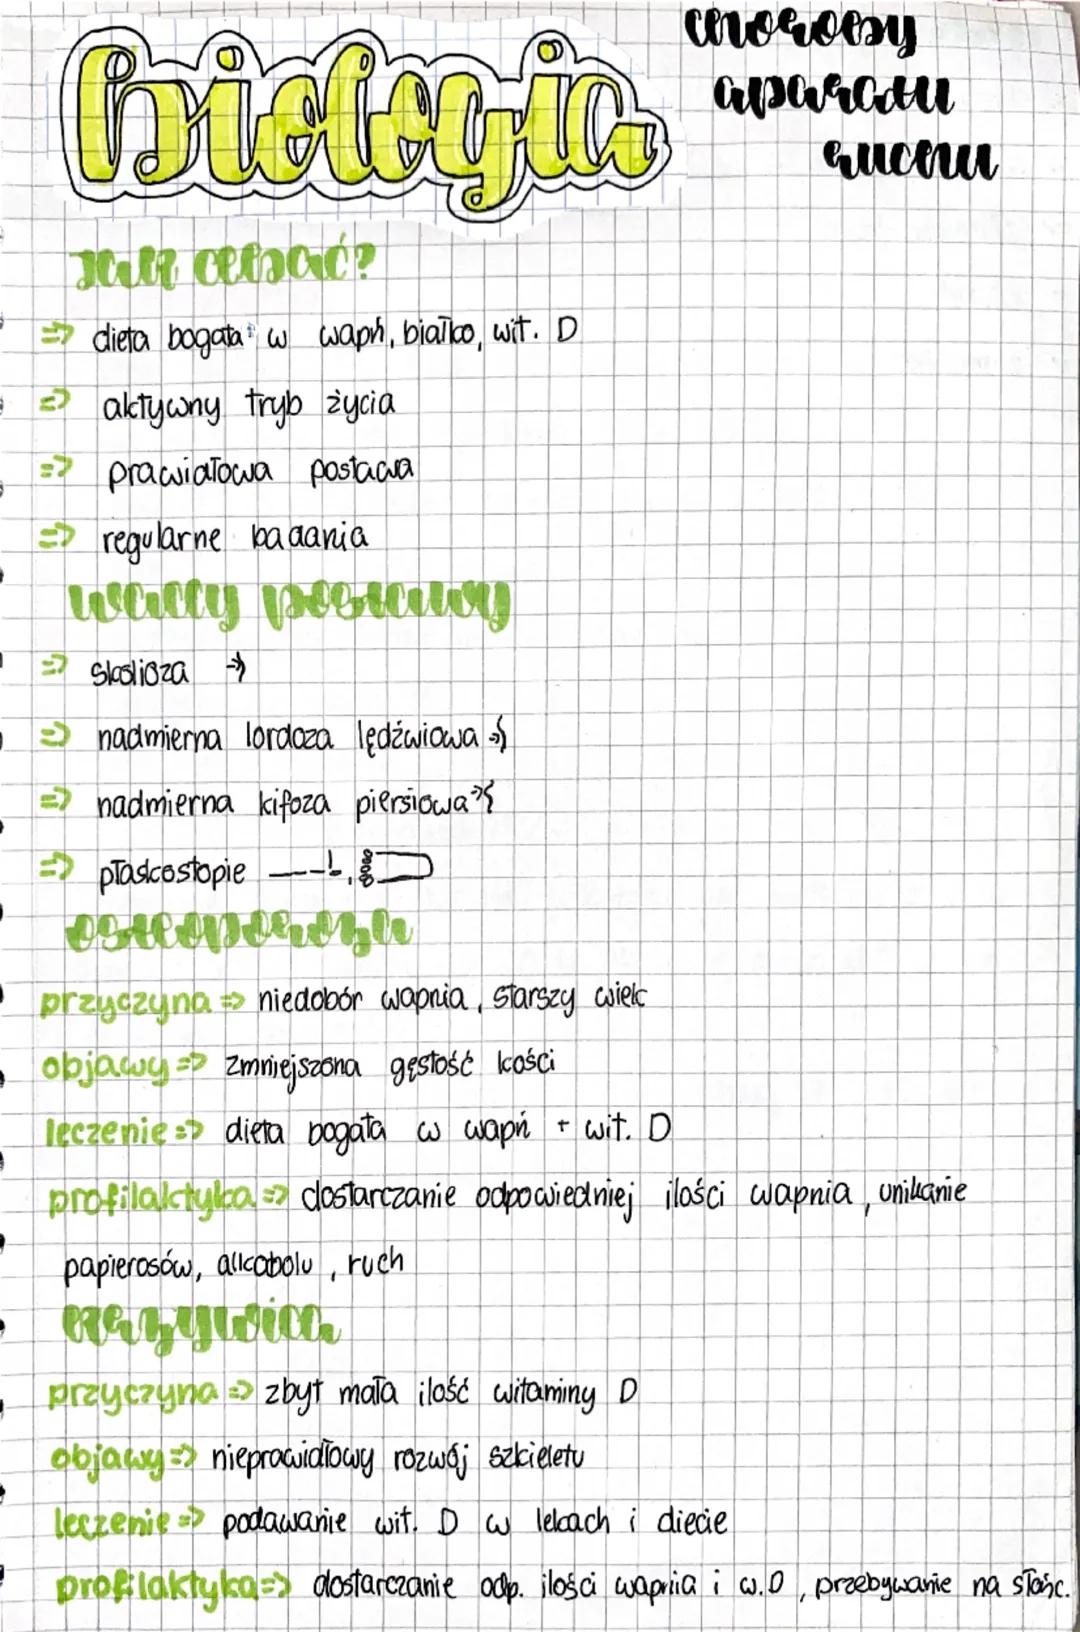 biologia
choroby
aparatu
ruchu
Jak dbać?
=> dieta bogata w wapń, białko, wit. D
=> aktywny tryb życia
=> prawiałowa postawa
=> regularne badania
wady postawy
=> skolioza →
=> nadmierna lordoza lędźwiowa →
=> nadmierna kifoza piersiowa →
=> płaskostopie
osteoporoza
przyczyna => niedobór wapnia, starszy wiek
objawy => zmniejszona gęstość kości
leczenie => dieta bogata w wapń + wit. D
profilaktyka => dostarczanie odpowiedniej ilości wapnia, unikanie
papierosów, alkoholu, ruch
krzywica
przyczyna => zbyt mała ilość witaminy D
objawy => nieprawidłowy rozwój szkieletu
leczenie => podawanie wit. D w lekach i diecie
profilaktyka => dostarczanie odp. ilości wapnia i w.D, przebywanie na słońc.